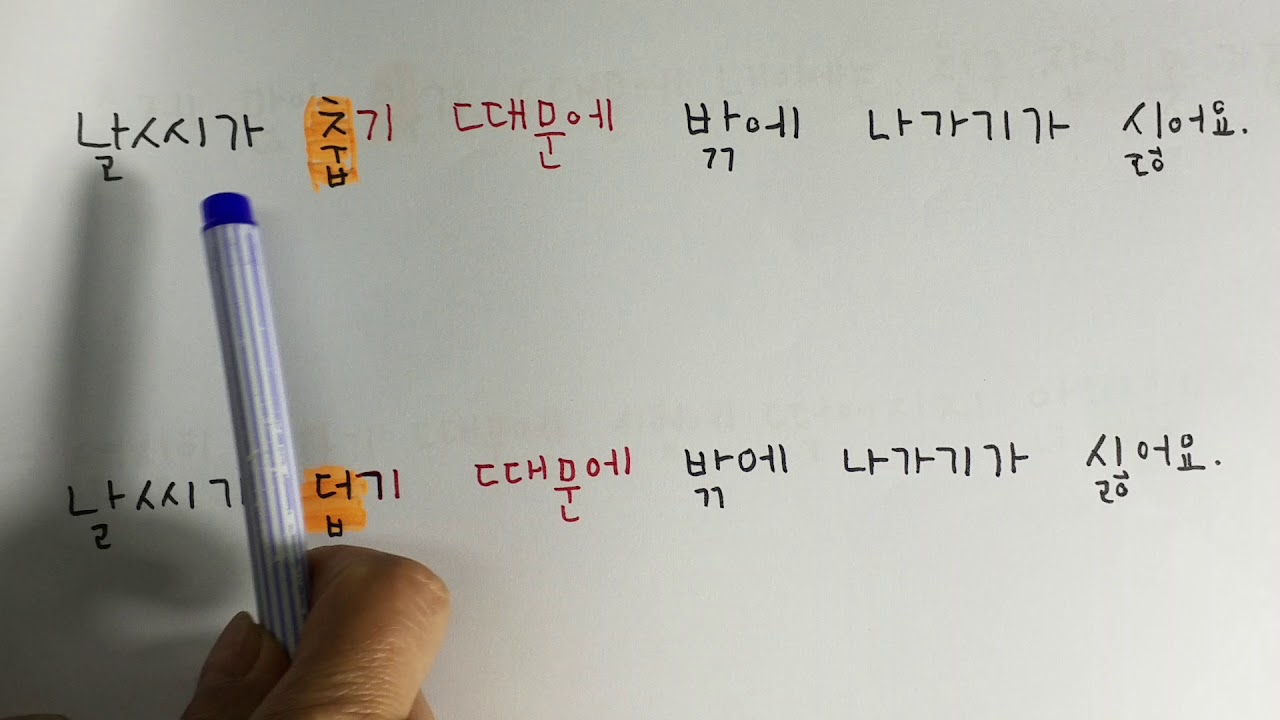 날씨가 춥기 때문에 밖에 나가기가 싫어요.
날씨가 덥기 때문에 밖에 나가기가 싫어요.